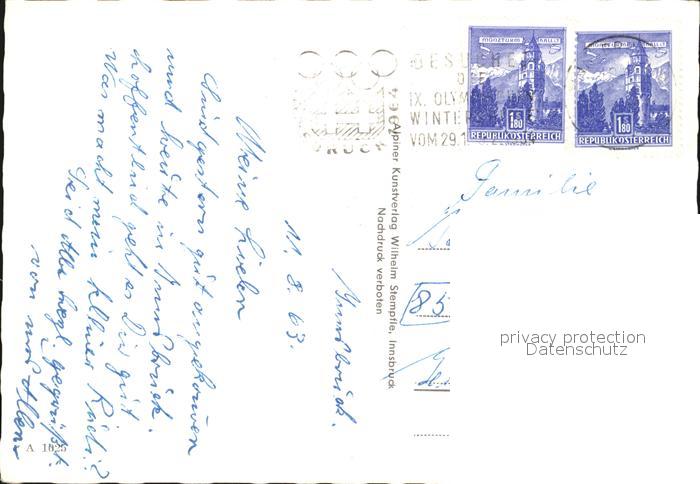 MÜNZTURM HALL I.T.
1.80
REPUBLIK ÖSTERREICH
1.80
REPUBLIK ÖSTERREICH
BESUCHE
DIE
IX. OLYM
WINTER
VOM 29.1
1964
BRUCK
Alpiner Kunstverlag Wilhelm Stempfle, Innsbruck
Nachdruck verboten
Familie
85
Innsbruck.
11.8.63.
Meine Lieben
Sind gestern gut angekommen
und heute in Innsbruck.
Hoffentlich geht es Dir gut
Was macht mein kleiner
Seid Alle herzl. gegrüßt.
von uns Allen
A 1025
privacy protection
Datenschutz